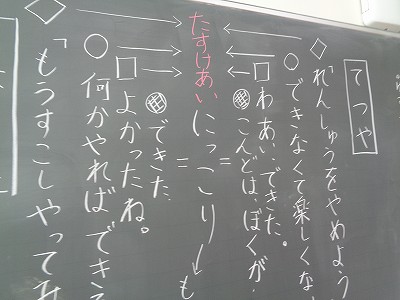 てつや
「れんしゅうをやめよう
○できなくて楽しくな
□わあい、できた。
こんどは、ぼくが
たすけあい にっこり
も
できた
□よかったね。
○何かやればできる
「もうすこしやってみ